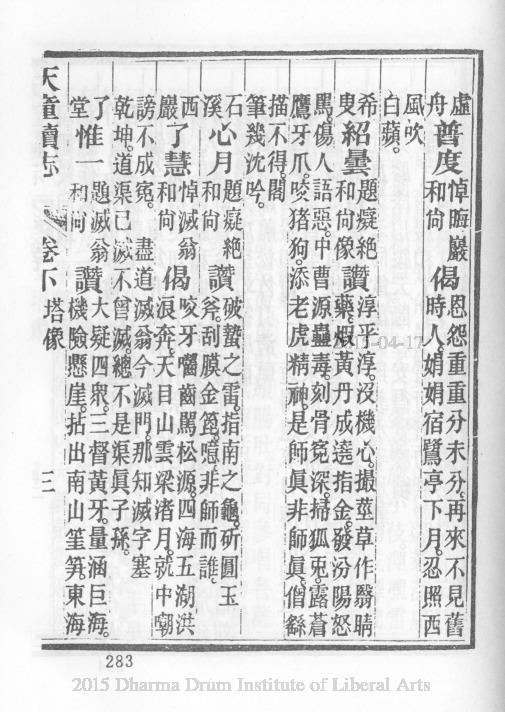 虛舟普度悼晦巖和尚偈恩怨重重分未分。再來不見舊
時人。娟娟宿鷺亭下月。忍照西
風吹
白蘋。
希叟紹曇題癡絕和尚像讚淳平淳。沒機心。撮莖草作翳睛
藥。煆黃丹成遶指金。發汾陽怒
罵。傷人語惡。中曹源蠱毒。刻骨寃深。掃狐兎。露蒼
鷹牙爪。咬猪狗。添老虎精神。是師眞。非師眞。僧繇
描不得。閣
筆幾沈吟。
石溪心月題癡絕和尚讚破蟄之雷。指南之龜。斫圓玉
斧。刮膜金篦。噫。非師而誰。
西巖了慧悼滅翁和尚偈咬牙囓齒罵松源。四海五湖洪
浪奔。天目山雲梁渚月。就中嘲
謗不成寃。 盡道滅翁今滅門。那知滅字塞
乾坤。道渠已滅不曾滅。總不是渠眞子孫。
了堂惟一題滅翁和尚讚大疑四衆。三督黃牙。量涵巨海。
機險懸崖。拈出南山筀笋。東海
天童續志 卷下 塔像 三
283
2015 Dharma Drum Institute of Liberal Arts